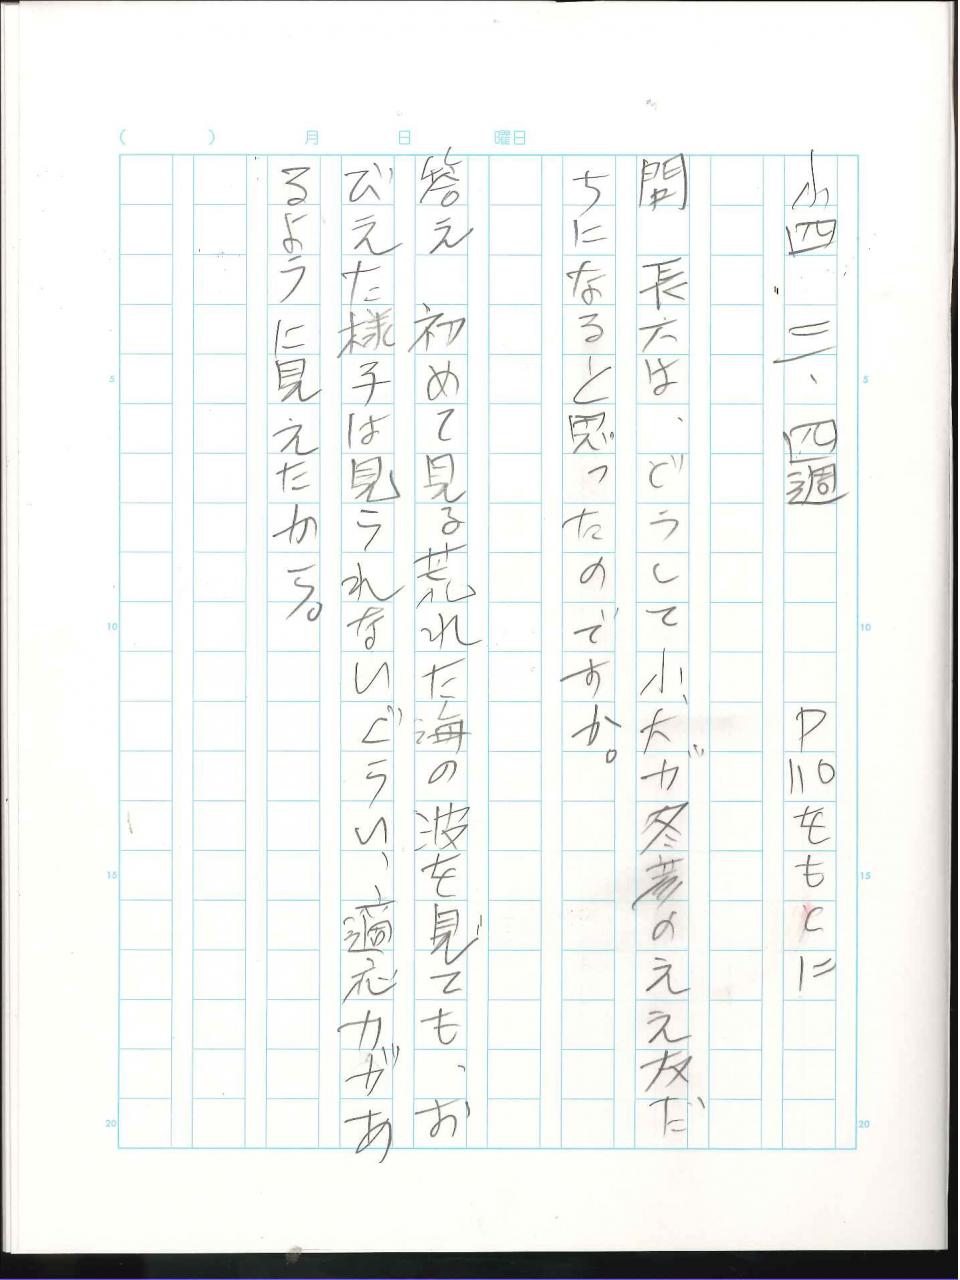 (　　　)　月　日　曜日
小四　三、四週　　　P110をもとに
問　長六は、どうして小犬が冬彦のええ友だ
ちになると思ったのですか。
答え　初めて見る荒れた海の波を見ても、お
びえた様子は見うれないぐらい、適応力があ
るように見えたから。
5
10
15
20
5
10
15
20